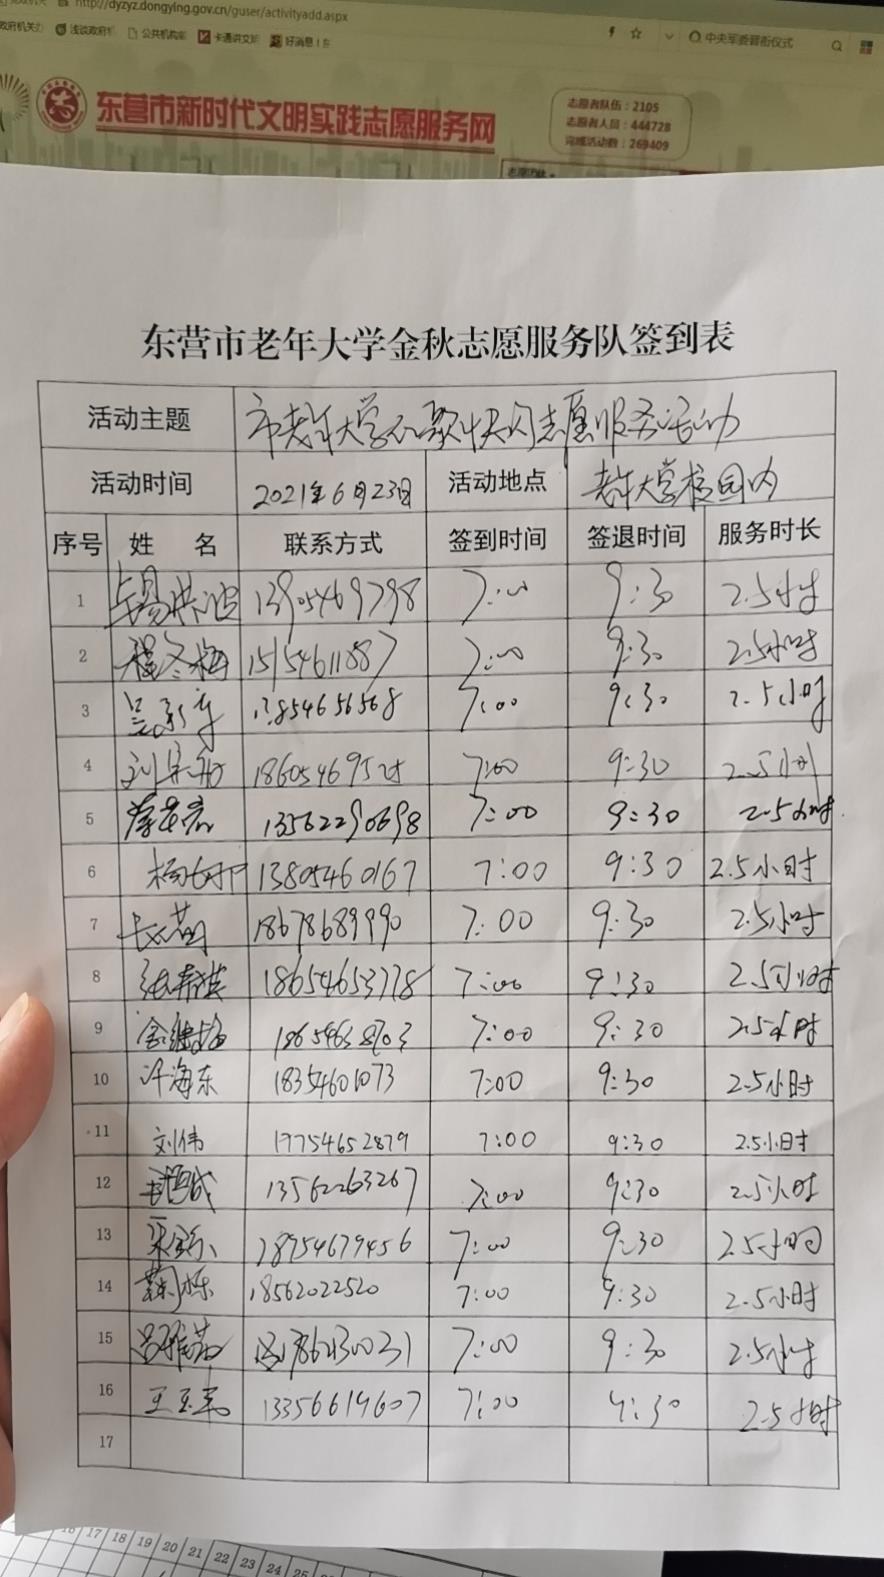 http://dyzyz.dongying.gov.cn/guser/activityadd.aspx
浅谈政府机 公共机构能 卡通讲文明 好消息！东 中央军委晋衔仪式
东营市新时代文明实践志愿服务网
志愿者队伍：2105
志愿者人员：444728
完成活动数：269409
东营市老年大学金秋志愿服务队签到表
活动主题 市老年大学红歌快闪志愿服务活动
活动时间 2021年6月23日 活动地点 老年大学校园内
序号 姓 名 联系方式 签到时间 签退时间 服务时长
1 13905469798 7:00 9:30 2.5小时
2 程冬梅 15154611887 7:00 9:30 2.5小时
3 7:00 9:30 2.5小时
4 7:00 9:30 2.5小时
5 13562290698 7:00 9:30 2.5小时
6 13805460167 7:00 9:30 2.5小时
7 18678689990 7:00 9:30 2.5小时
8 18654653778 7:00 9:30 2.5小时
9 18654638703 7:00 9:30 2.5小时
10 许海东 18354601073 7:00 9:30 2.5小时
11 刘伟 19754652879 7:00 9:30 2.5小时
12 13562263267 7:00 9:30 2.5小时
13 18954679456 7:00 9:30 2.5小时
14 18562022520 7:00 9:30 2.5小时
15 吕雅茹 7:00 9:30 2.5小时
16 13356619607 7:00 9:30 2.5小时
17
16 17 18 19 20 21 22 23 24 25